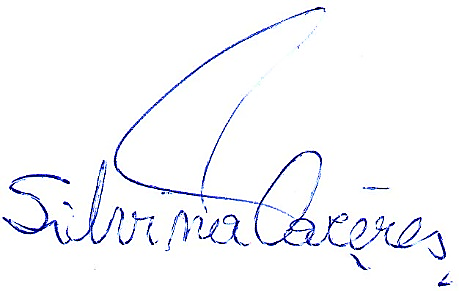 Silvina Caceres